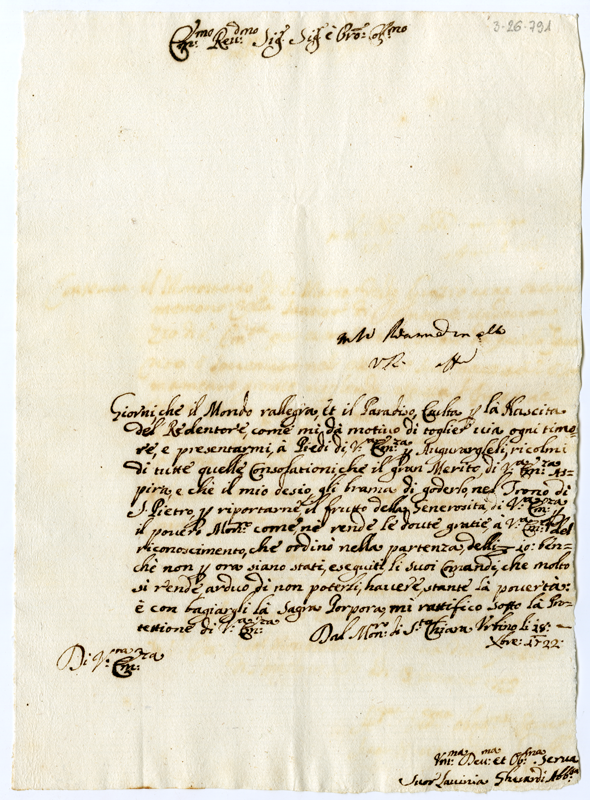 3-26-791
Em:mo Reu:dmo Sig:r Sig:r è Pro:ne Col:mo
Giorni che il Mondo rallegra, et il Paradiso, esulta p la Nascita
del Redentore, come mi dà motivo di toglier via ogni timo=
re, e presentarmi, à Piedi di V:ra Em:za p Augurargleli, ricolmi
di tutte quelle Consolationi, che il gran Merito, di V:ra Em:za As=
pira, e chè il mio desio, gli brama di goderlo, nel Trono di
S. Pietro, p riportarne il frutto della Generosità, di V:ra Em:za
il povero Mon:ro come nè rende le doute gratie à V:ra Em:za del
riconoscimento, che ordinò nella partenza, delli = 10: ben=
chè non p ora siano stati, eseguiti li suoi Comandi, che molto
si rende, arduo di non poterli, hauere, stante la povertà:
è con bagiargli la Sagra Porpora, mi rattifico sotto la Pro=
tettione di V:ra Em:za
Dal Mon:ro di S:ta Chiara Urbino li 18: =
Xbre: 1722:
Di V:ra Em:za
Um:ma Deu:ma et Ob:ma Serva
Suor Lavinia Gherardi Abb:ssa